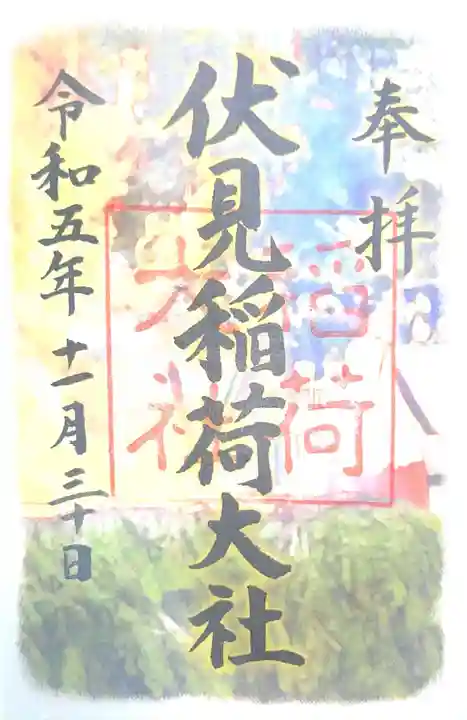 奉拝
伏見稲荷大社
稲荷
大社
令和五年十一月三十日